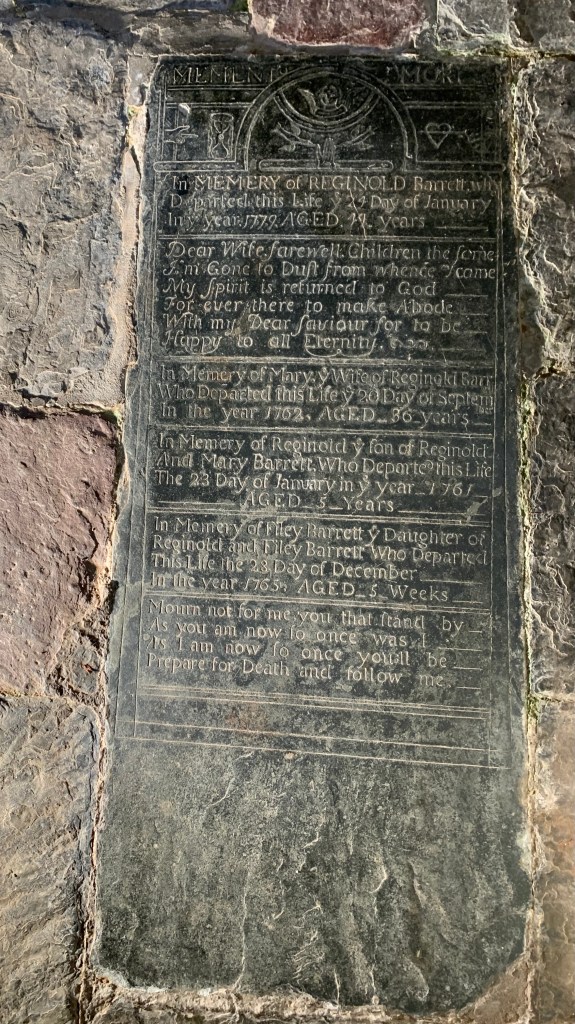 MEMENTO MORI
In MEMERY of REGINOLD Barrett, who
Departed this Life ye 24 Day of January
In ye year 1779. AGED years
Dear Wife farewell. Children the same
I'm Gone to Dust from whence I came
My spirit is returned to God
For ever there to make Abode
With my Dear saviour for to be
Happy to all Eternity.
In Memery of Mary, ye Wife of Reginold Barr
Who Departed this Life ye 20 Day of Septem
In the year 1762. AGED 36 years
In Memery of Reginold ye son of Reginold
And Mary Barrett, Who Departed this Life
The 23 Day of January in ye year 1761
AGED 5 Years
In Memery of Filey Barrett ye Daughter of
Reginold and Filey Barrett Who Departed
This Life the 28 Day of December
In the year 1765. AGED 5 Weeks
Mourn not for me you that stand by
As you am now so once was I
As I am now so once you'll be
Prepare for Death and follow me